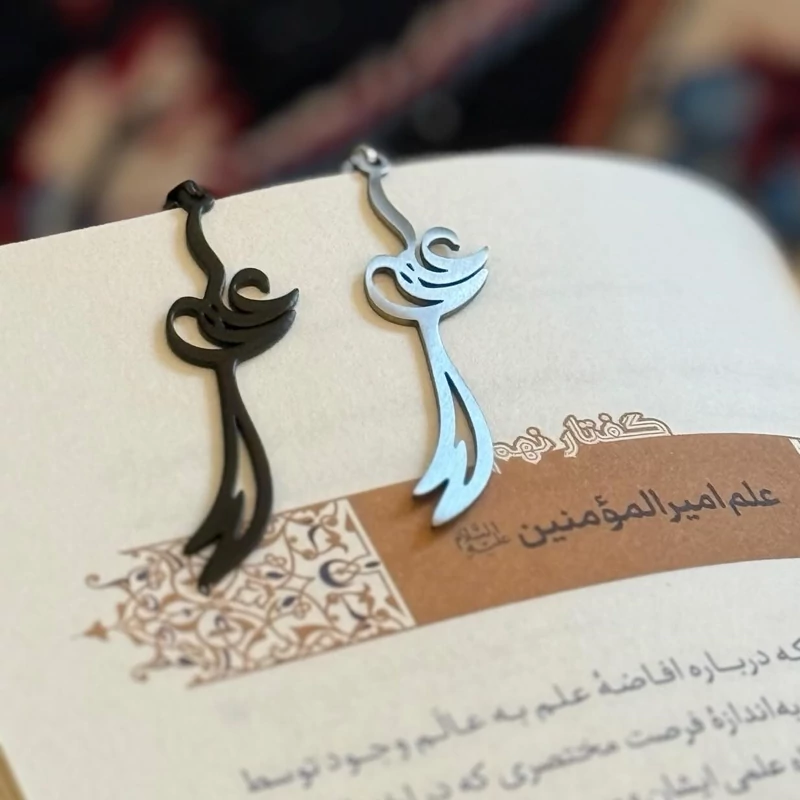 گفتار نهم
علم امیرالمؤمنین علیه السلام
که درباره افاضۀ علم به عالَم وجود توسط
به‌اندازۀ فرصت مختصری که در
علمی ایشان